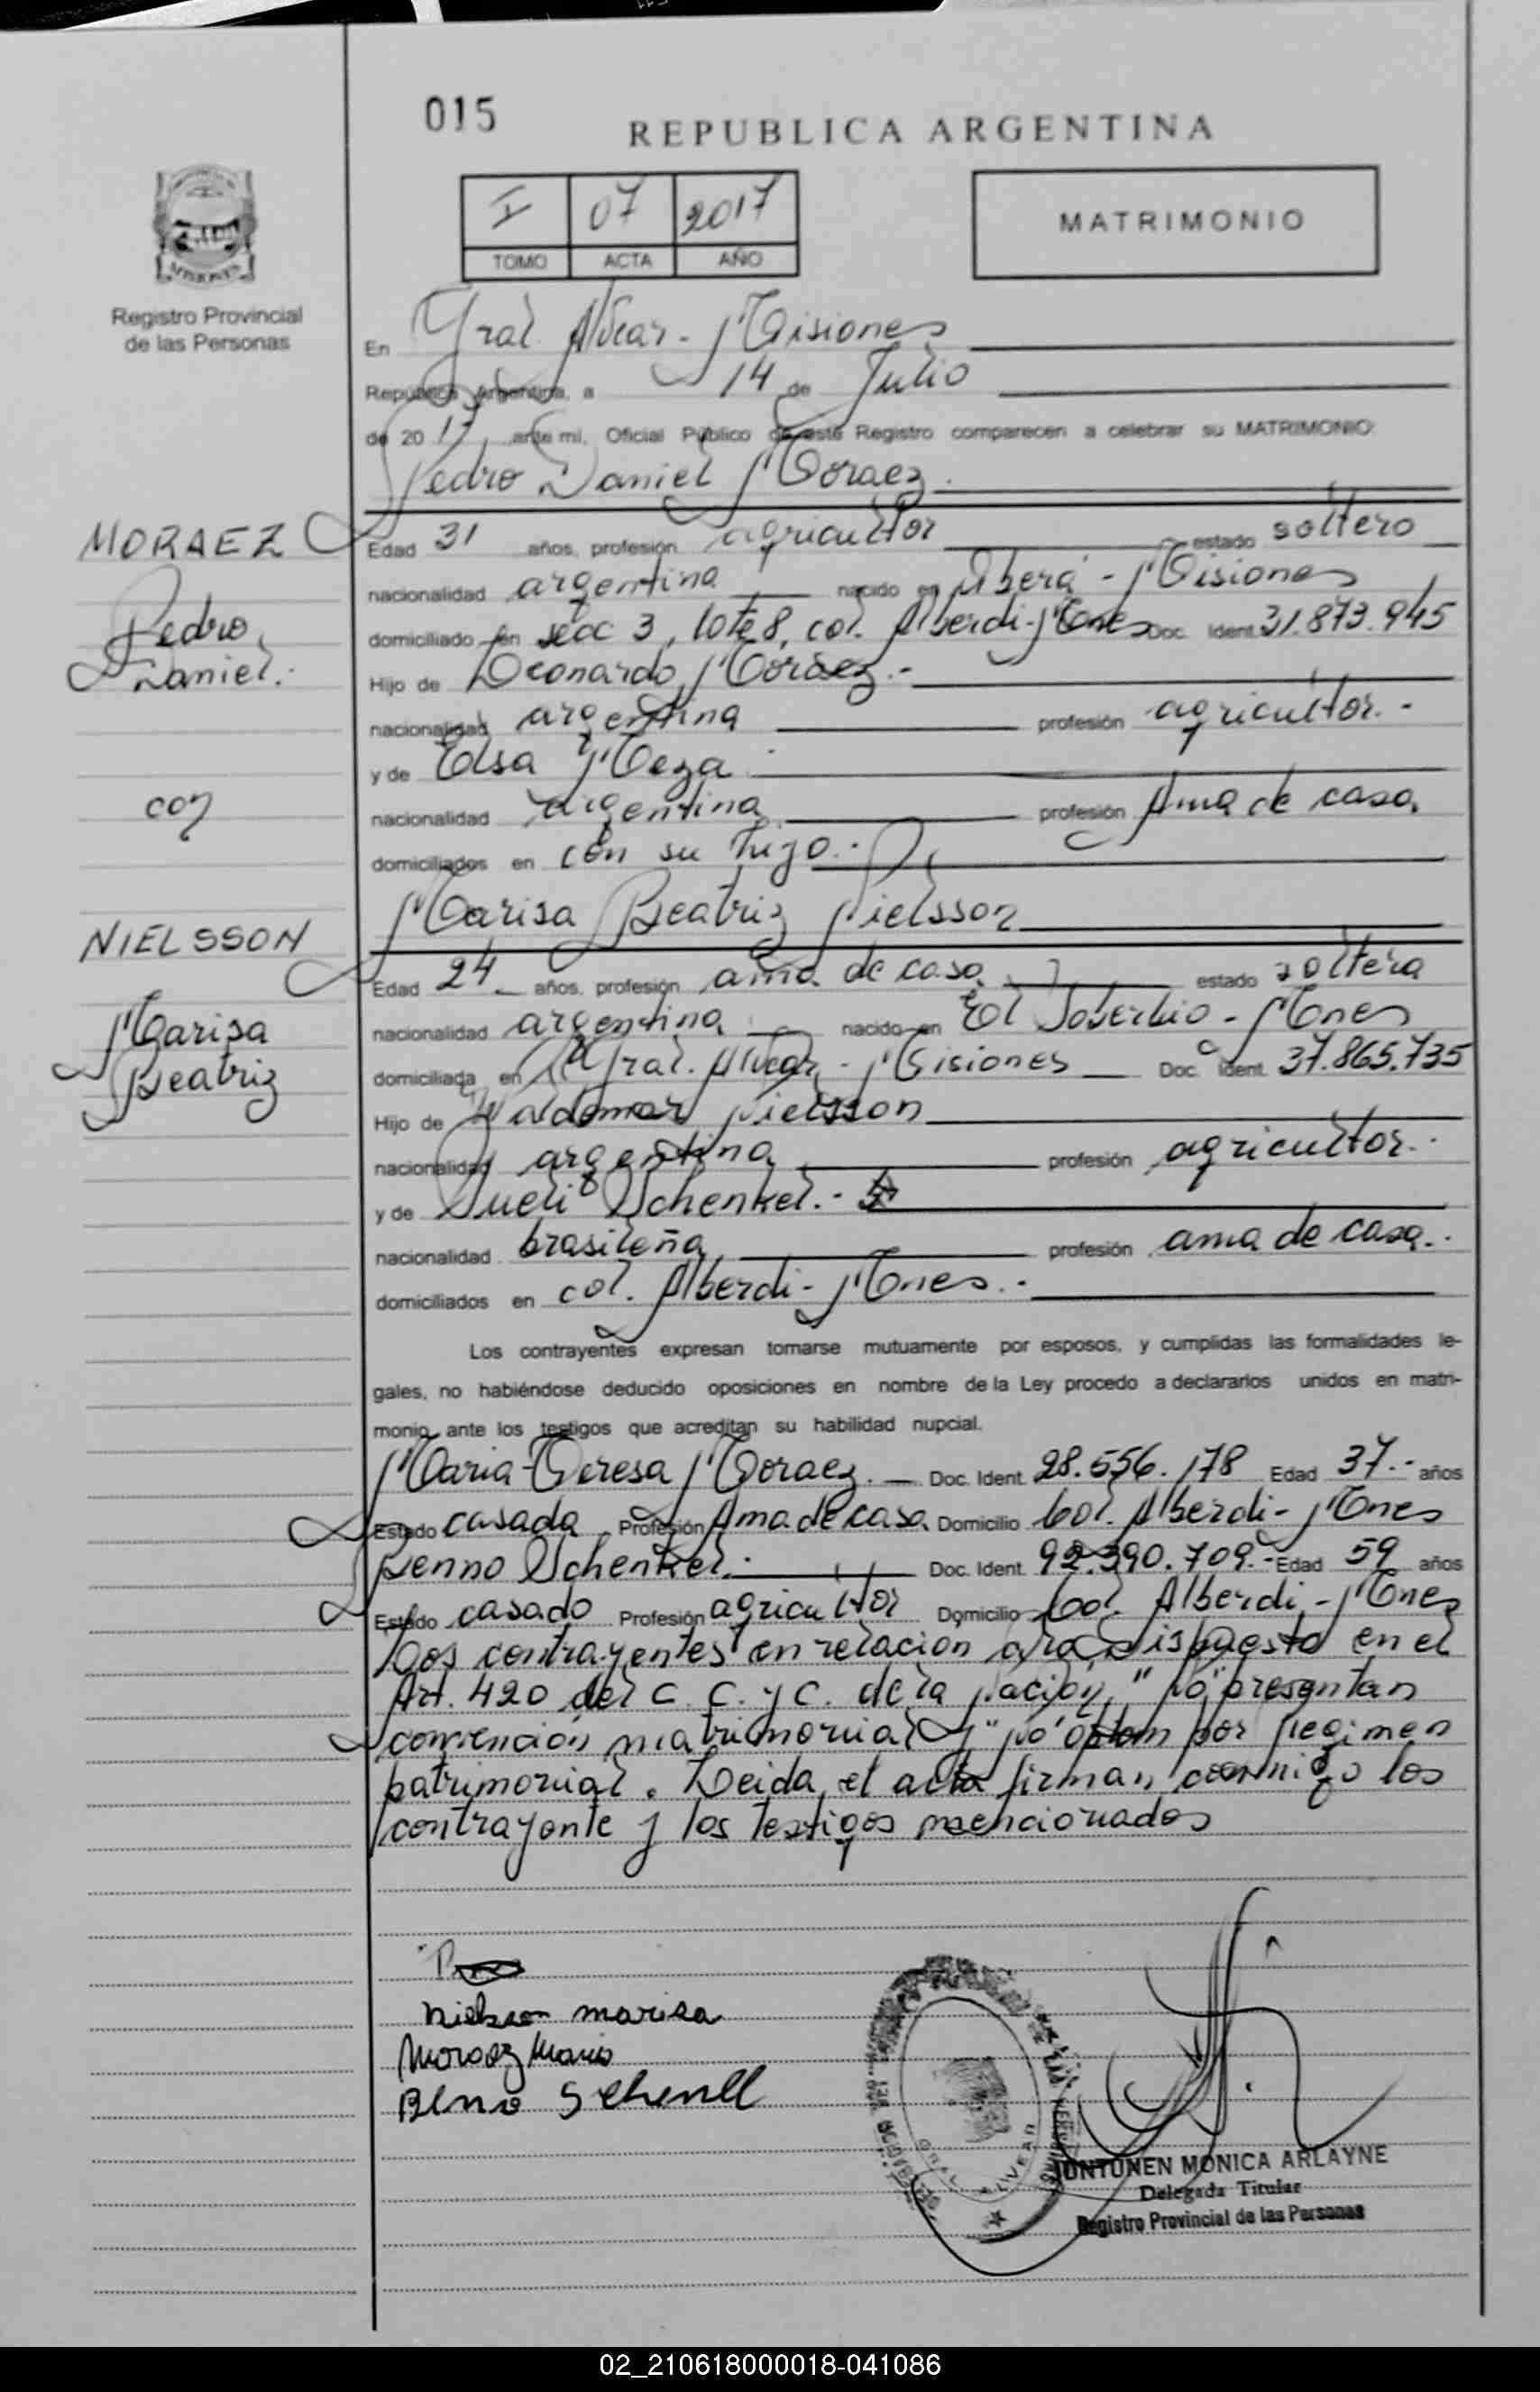 015
REPUBLICA ARGENTINA
I 07 2017
TOMO ACTA AÑO
MATRIMONIO
MISIONES
Registro Provincial
de las Personas
En Gral. Alvear - Misiones
República Argentina, a 14 de Julio
de 2017, ante mi, Oficial Público de este Registro comparecen a celebrar su MATRIMONIO:
Pedro Daniel Moraez
MORAEZ
Pedro
Daniel.
Edad 31 años, profesión agricultor estado soltero
nacionalidad argentina nacido en Oberá - Misiones
domiciliado en secc 3, lote 8, col. Alberdi - Mnes Doc. Ident. 31.873.945
Hijo de Leonardo Moraez.-
nacionalidad argentina profesión agricultor.-
y de Elsa Meza
nacionalidad argentina profesión Ama de casa.
domiciliados en con su hijo.-
con
Marisa Beatriz Nielsson
NIELSSON
Marisa
Beatriz
Edad 24 años, profesión ama de casa estado soltera
nacionalidad argentina nacido en El Soberbio - Mnes
domiciliada en Gral. Alvear - Misiones Doc. Ident. 37.865.735
Hijo de Valdemar Nielsson
nacionalidad argentina profesión agricultor.-
y de Sueli Schenkel.-
nacionalidad brasileña profesión ama de casa.-
domiciliados en col. Alberdi - Mnes.-
Los contrayentes expresan tomarse mutuamente por esposos, y cumplidas las formalidades le-
gales, no habiéndose deducido oposiciones en nombre de la Ley procedo a declararlos unidos en matri-
monio ante los testigos que acreditan su habilidad nupcial.
Maria Teresa Moraez. Doc. Ident. 28.556.178 Edad 37.- años
Estado casada Profesión Ama de casa Domicilio Col. Alberdi - Mnes
Benno Schenkel.- Doc. Ident. 92.390.709.- Edad 59 años
Estado casado Profesión agricultor Domicilio Col. Alberdi - Mnes
Los contrayentes en relación a lo dispuesto en el
Art. 420 del C. C. y C. de la Nación, "No" presentan
convención matrimonial y "No" optan por Regimen
patrimonial. Leida el acta firman conmigo los
contrayente y los testigos mencionados
Nielsson marisa
Moraez Maria
Beno Schenkel
GRAL. ALVEAR
JUNTUNEN MONICA ARLAYNE
Delegada Titular
Registro Provincial de las Personas
02_210618000018-041086